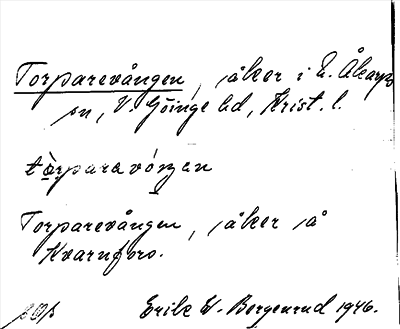 Torparevången, åker i N. Åkarps
sn, V. Göinge hd, Krist. l.
tòrparavóŋen
Torparevången, åker på
Kvarnforo.
Erik W. Bergenrud 1946.